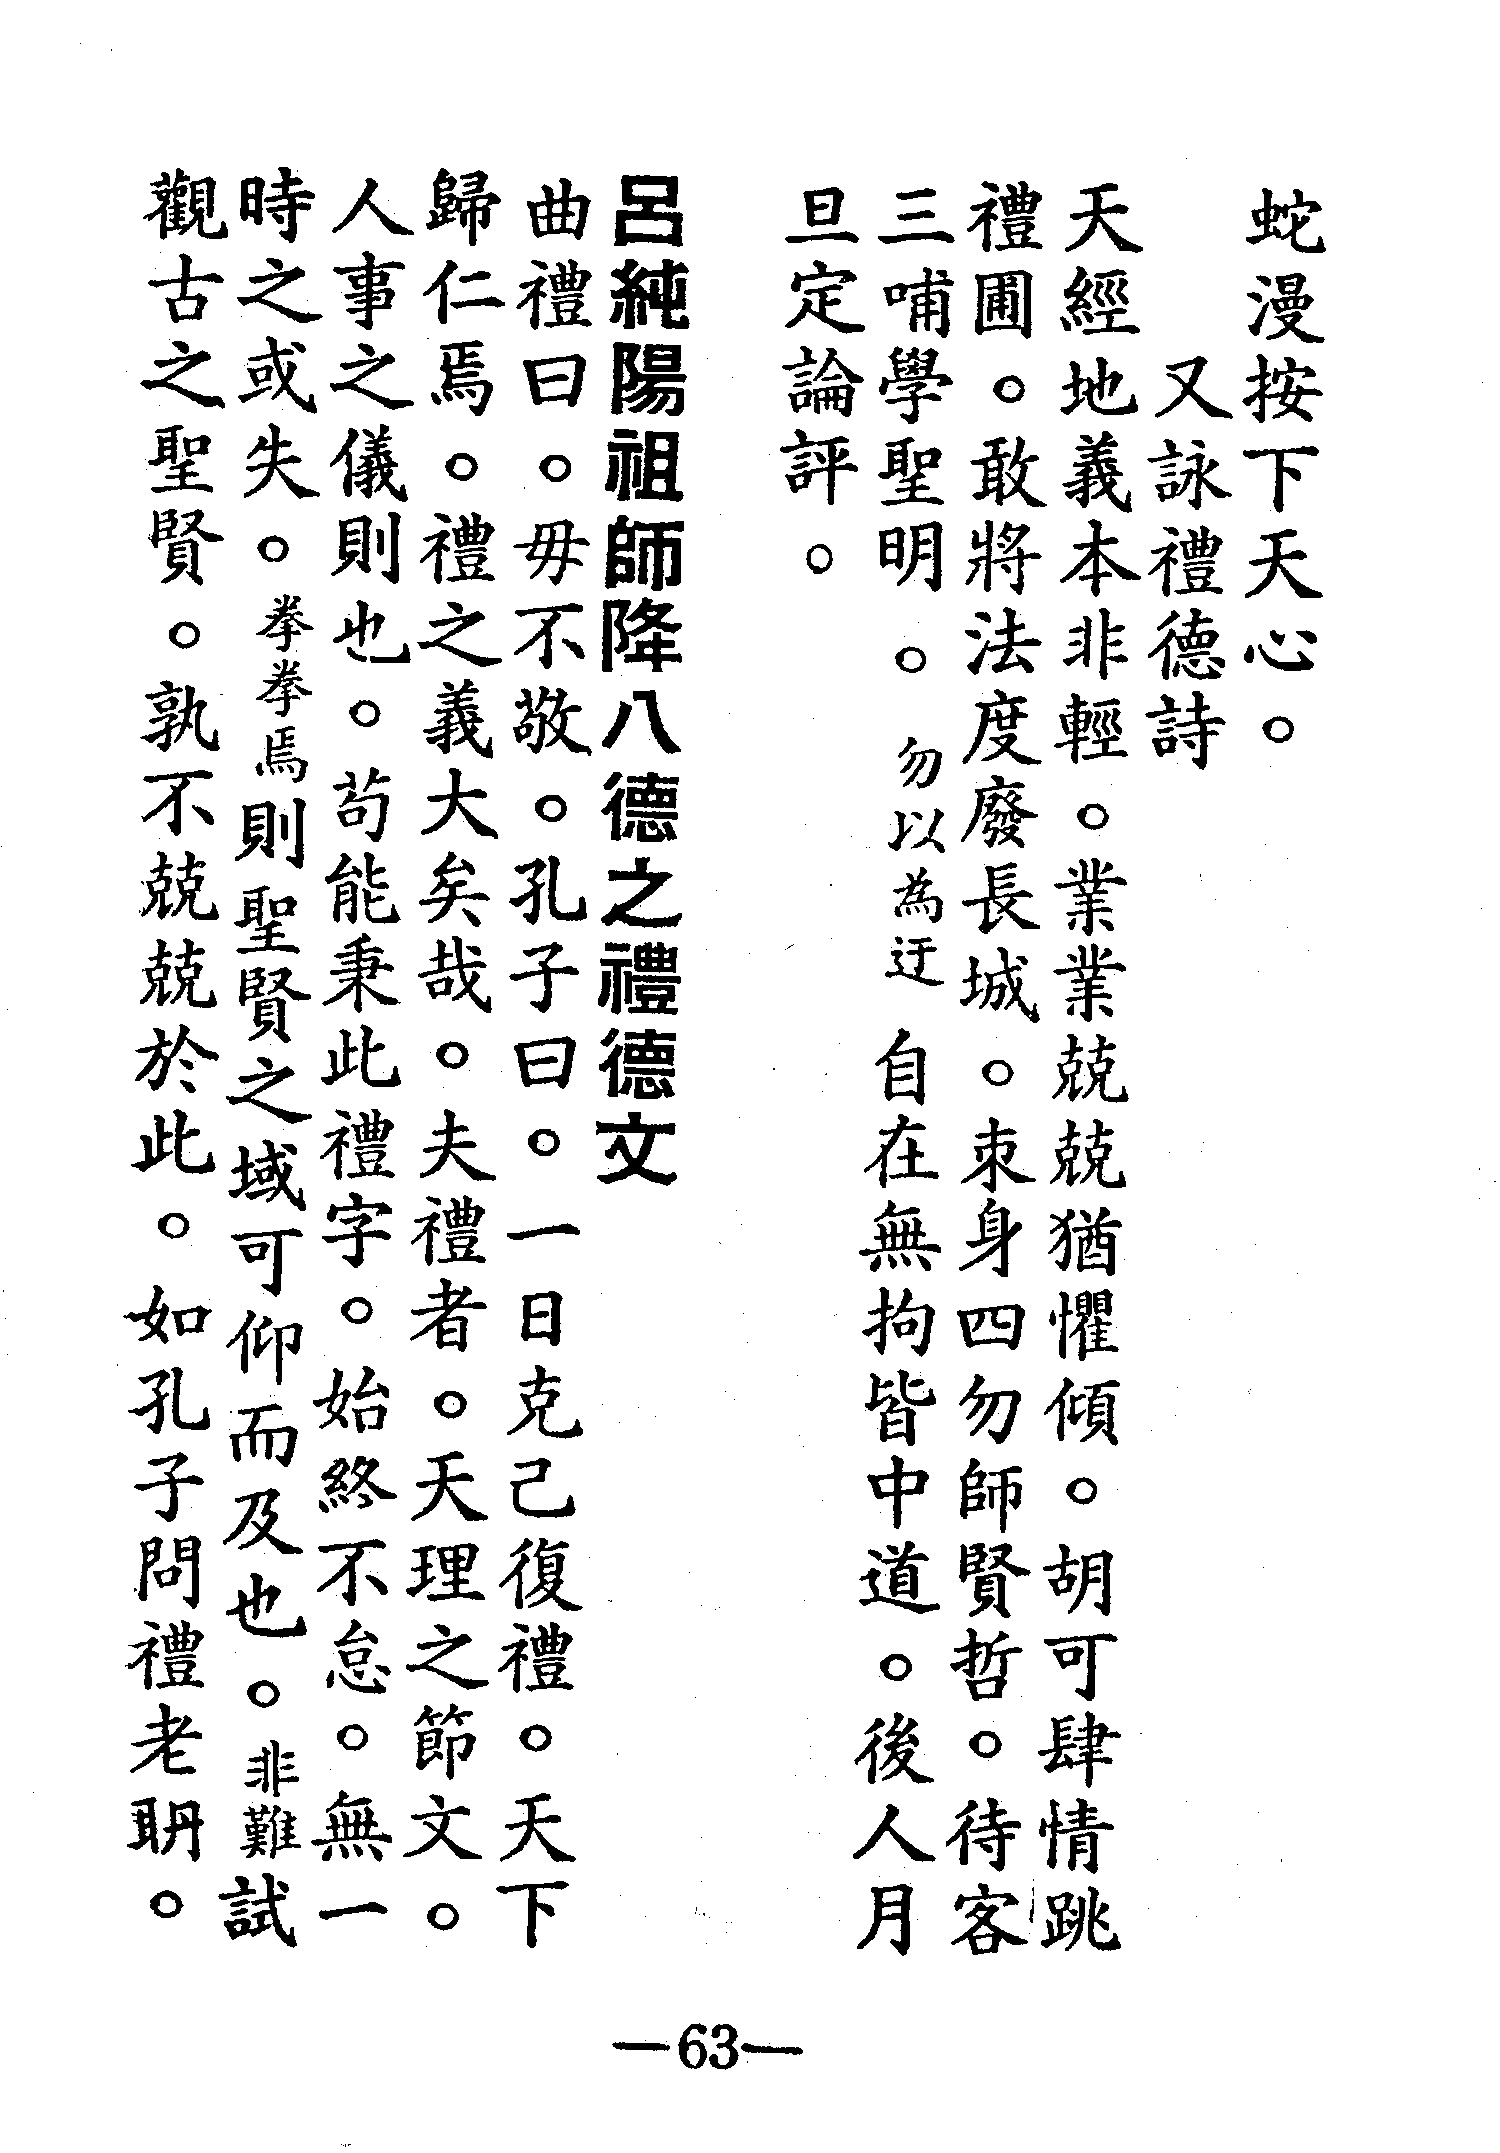 蛇漫按下天心。
又詠禮德詩
天經地義本非輕。業業兢兢猶懼傾。胡可肆情跳
禮圃。敢將法度廢長城。束身四勿師賢哲。待客
三哺學聖明。勿以為迂自在無拘皆中道。後人月
旦定論評。
呂純陽祖師降八德之禮德文
曲禮曰。毋不敬。孔子曰。一日克己復禮。天下
歸仁焉。禮之義大矣哉。夫禮者。天理之節文。
人事之儀則也。苟能秉此禮字。始終不怠。無一
時之或失。拳拳焉則聖賢之域可仰而及也。非難試
觀古之聖賢。孰不兢兢於此。如孔子問禮老聃。
—63—